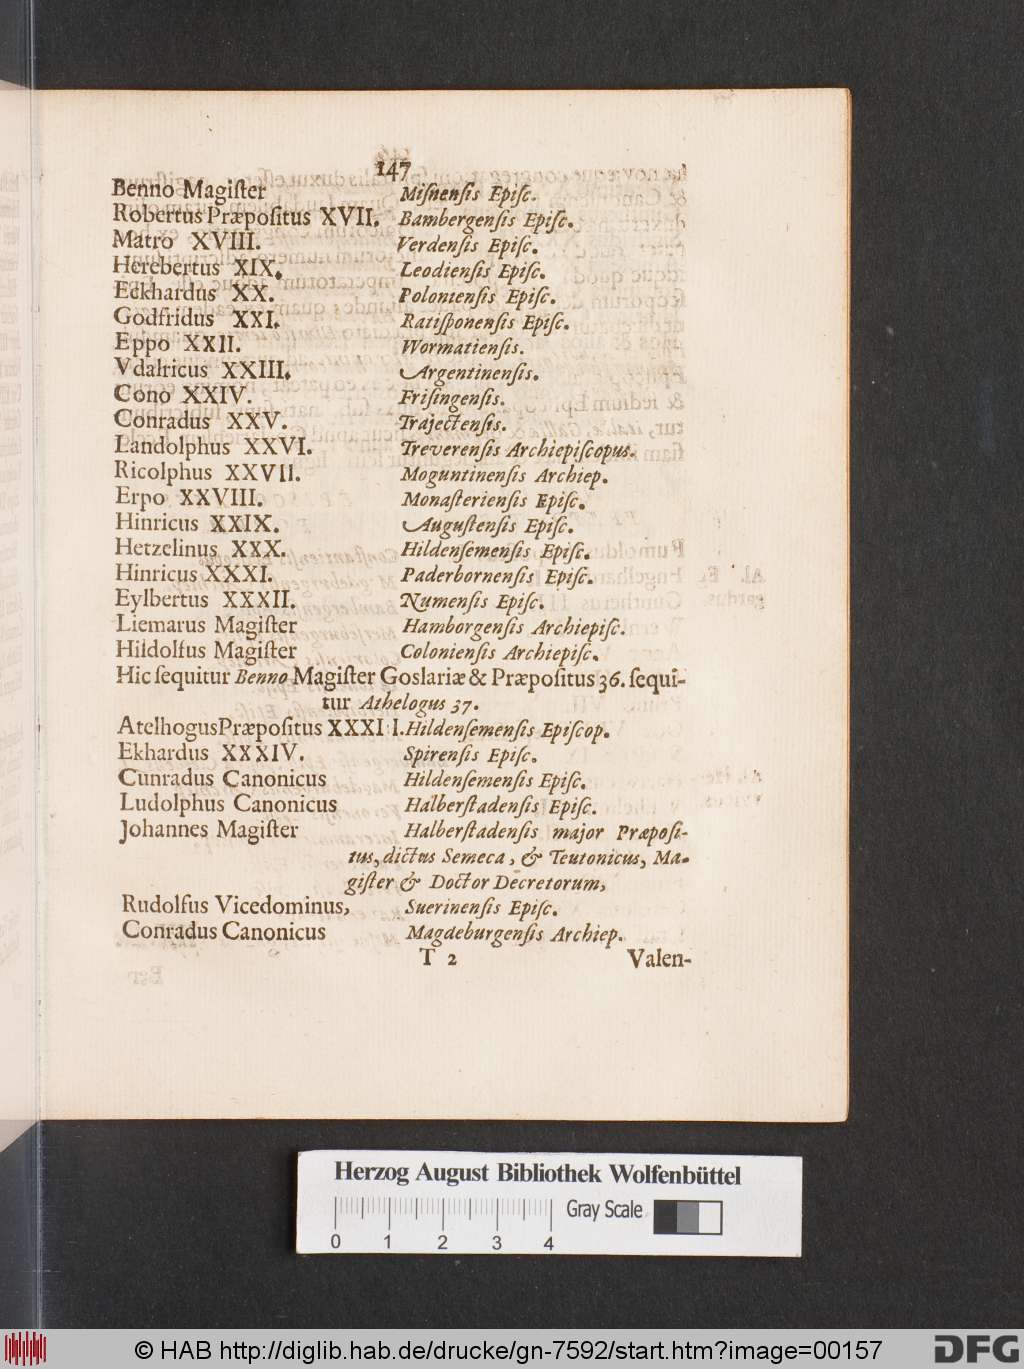 147
Benno Magiſter Miſnenſis Epiſc.
Robertus Præpoſitus XVII. Bambergenſis Epiſc.
Matro XVIII. Verdenſis Epiſc.
Herebertus XIX. Leodienſis Epiſc.
Eckhardus XX. Polonienſis Epiſc.
Godfridus XXI. Ratiſponenſis Epiſc.
Eppo XXII. Wormatienſis.
Vdalricus XXIII. Argentinenſis.
Cono XXIV. Friſingenſis.
Conradus XXV. Trajectenſis.
Landolphus XXVI. Treverenſis Archiepiſcopus.
Ricolphus XXVII. Moguntinenſis Archiep.
Erpo XXVIII. Monaſterienſis Epiſc.
Hinricus XXIX. Auguſtenſis Epiſc.
Hetzelinus XXX. Hildenſemenſis Epiſc.
Hinricus XXXI. Paderbornenſis Epiſc.
Eylbertus XXXII. Numenſis Epiſc.
Liemarus Magiſter Hamborgenſis Archiepiſc.
Hildolfus Magiſter Colonienſis Archiepiſc.
Hic ſequitur Benno Magiſter Goslariæ & Præpoſitus 36. ſequi-
tur Athelogus 37.
Atelhogus Præpoſitus XXXIII. Hildenſemenſis Epiſcop.
Ekhardus XXXIV. Spirenſis Epiſc.
Cunradus Canonicus Hildenſemenſis Epiſc.
Ludolphus Canonicus Halberſtadenſis Epiſc.
Johannes Magiſter Halberſtadenſis major Præpoſi-
tus, dictus Semeca, & Teutonicus, Ma-
giſter & Doctor Decretorum,
Rudolfus Vicedominus, Suerinenſis Epiſc.
Conradus Canonicus Magdeburgenſis Archiep.
T 2 Valen-
Herzog August Bibliothek Wolfenbüttel
Gray Scale
0 1 2 3 4
© HAB http://diglib.hab.de/drucke/gn-7592/start.htm?image=00157
DFG